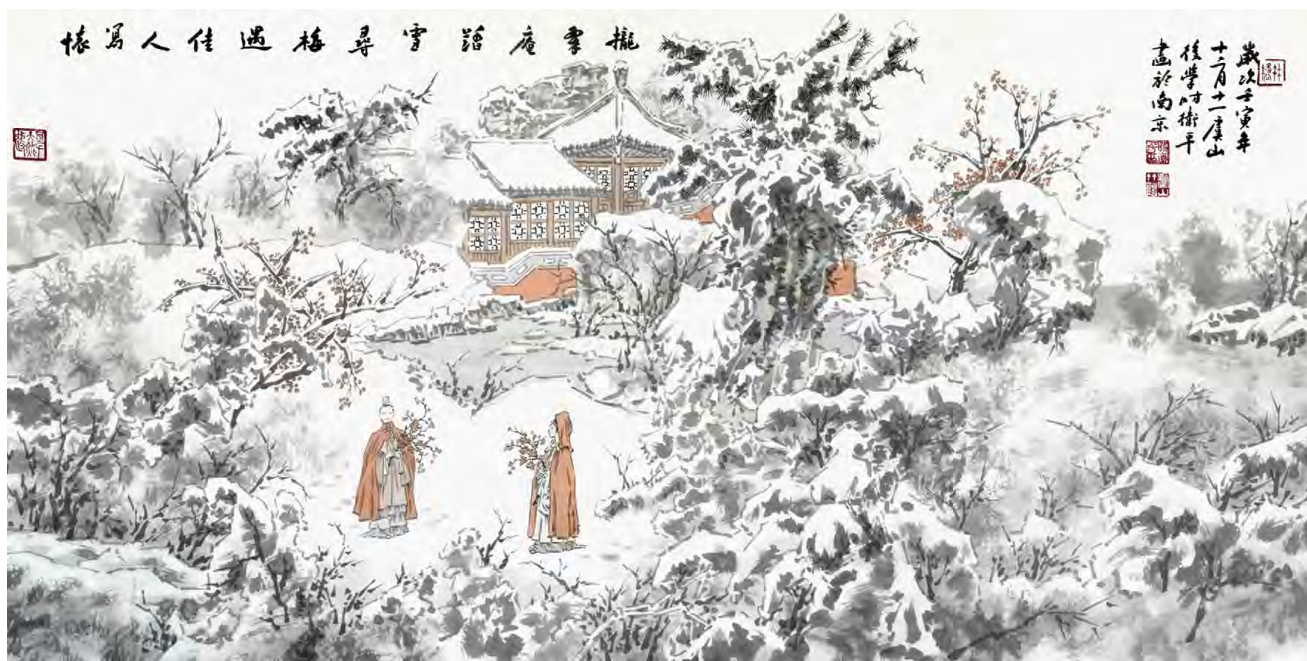 攏翠庵踏雪尋梅遇佳人寫懷
歲次壬寅年
十二月十一虞山
後學时衛平
畫於南京